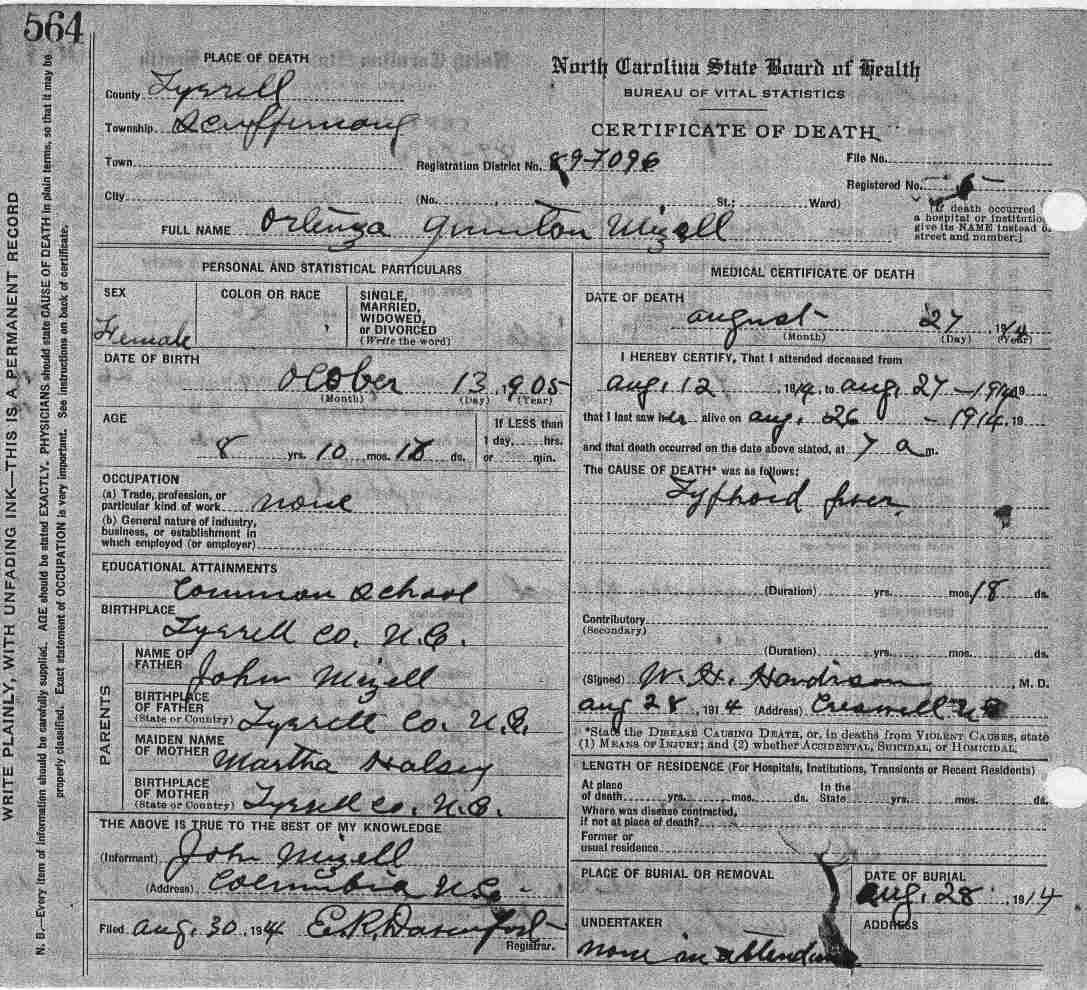 564
WRITE PLAINLY, WITH UNFADING INK—THIS IS A PERMANENT RECORD
N. B.—Every item of information should be carefully supplied. AGE should be stated EXACTLY. PHYSICIANS should state CAUSE OF DEATH in plain terms, so that it may be
properly classified. Exact statement of OCCUPATION is very important. See instructions on back of certificate.
PLACE OF DEATH
County Tyrrell
Township Scuppernong
Town
City
North Carolina State Board of Health
BUREAU OF VITAL STATISTICS
CERTIFICATE OF DEATH
Registration District No. 89-7096
File No.
Registered No. 5
(No. St.; Ward)
[If death occurred
a hospital or institution
give its NAME instead of
street and number.]
FULL NAME Mizell
PERSONAL AND STATISTICAL PARTICULARS
SEX
Female
COLOR OR RACE
SINGLE,
MARRIED,
WIDOWED,
or DIVORCED
(Write the word)
DATE OF BIRTH
October 13, 1905
(Month) (Day) (Year)
AGE
8 yrs. 10 mos. ds.
If LESS than
1 day, hrs.
or min.
OCCUPATION
(a) Trade, profession, or
particular kind of work none
(b) General nature of industry,
business, or establishment in
which employed (or employer)
EDUCATIONAL ATTAINMENTS
Common School
BIRTHPLACE
Tyrrell Co. N.C.
PARENTS
NAME OF
FATHER John Mizell
BIRTHPLACE
OF FATHER
(State or Country) Tyrrell Co. N.C.
MAIDEN NAME
OF MOTHER Martha Halsey
BIRTHPLACE
OF MOTHER
(State or Country) Tyrrell Co. N.C.
THE ABOVE IS TRUE TO THE BEST OF MY KNOWLEDGE
(Informant) John Mizell
(Address) Columbia N.C.
Filed Aug. 30, 1914 E.R. Davenport
Registrar.
MEDICAL CERTIFICATE OF DEATH
DATE OF DEATH
August 27 1914
(Month) (Day) (Year)
I HEREBY CERTIFY, That I attended deceased from
Aug. 12, 191 to Aug. 27 - 1914 19
that I last saw her alive on Aug. 26 - 1914, 19
and that death occurred on the date above stated, at 7 a m.
The CAUSE OF DEATH* was as follows:
Typhoid fever
(Duration) yrs. mos. 18 ds.
Contributory
(Secondary)
(Duration) yrs. mos. ds.
(Signed) W. H. Hardison, M. D.
Aug 28, 1914 (Address) Creswell N.C.
*State the DISEASE CAUSING DEATH, or, in deaths from VIOLENT CAUSES, state
(1) MEANS OF INJURY; and (2) whether ACCIDENTAL, SUICIDAL, or HOMICIDAL.
LENGTH OF RESIDENCE (For Hospitals, Institutions, Transients or Recent Residents)
At place
of death yrs. mos. ds. In the
State yrs. mos. ds.
Where was disease contracted,
if not at place of death?
Former or
usual residence
PLACE OF BURIAL OR REMOVAL
DATE OF BURIAL
Aug. 28, 1914
UNDERTAKER
none in
ADDRESS